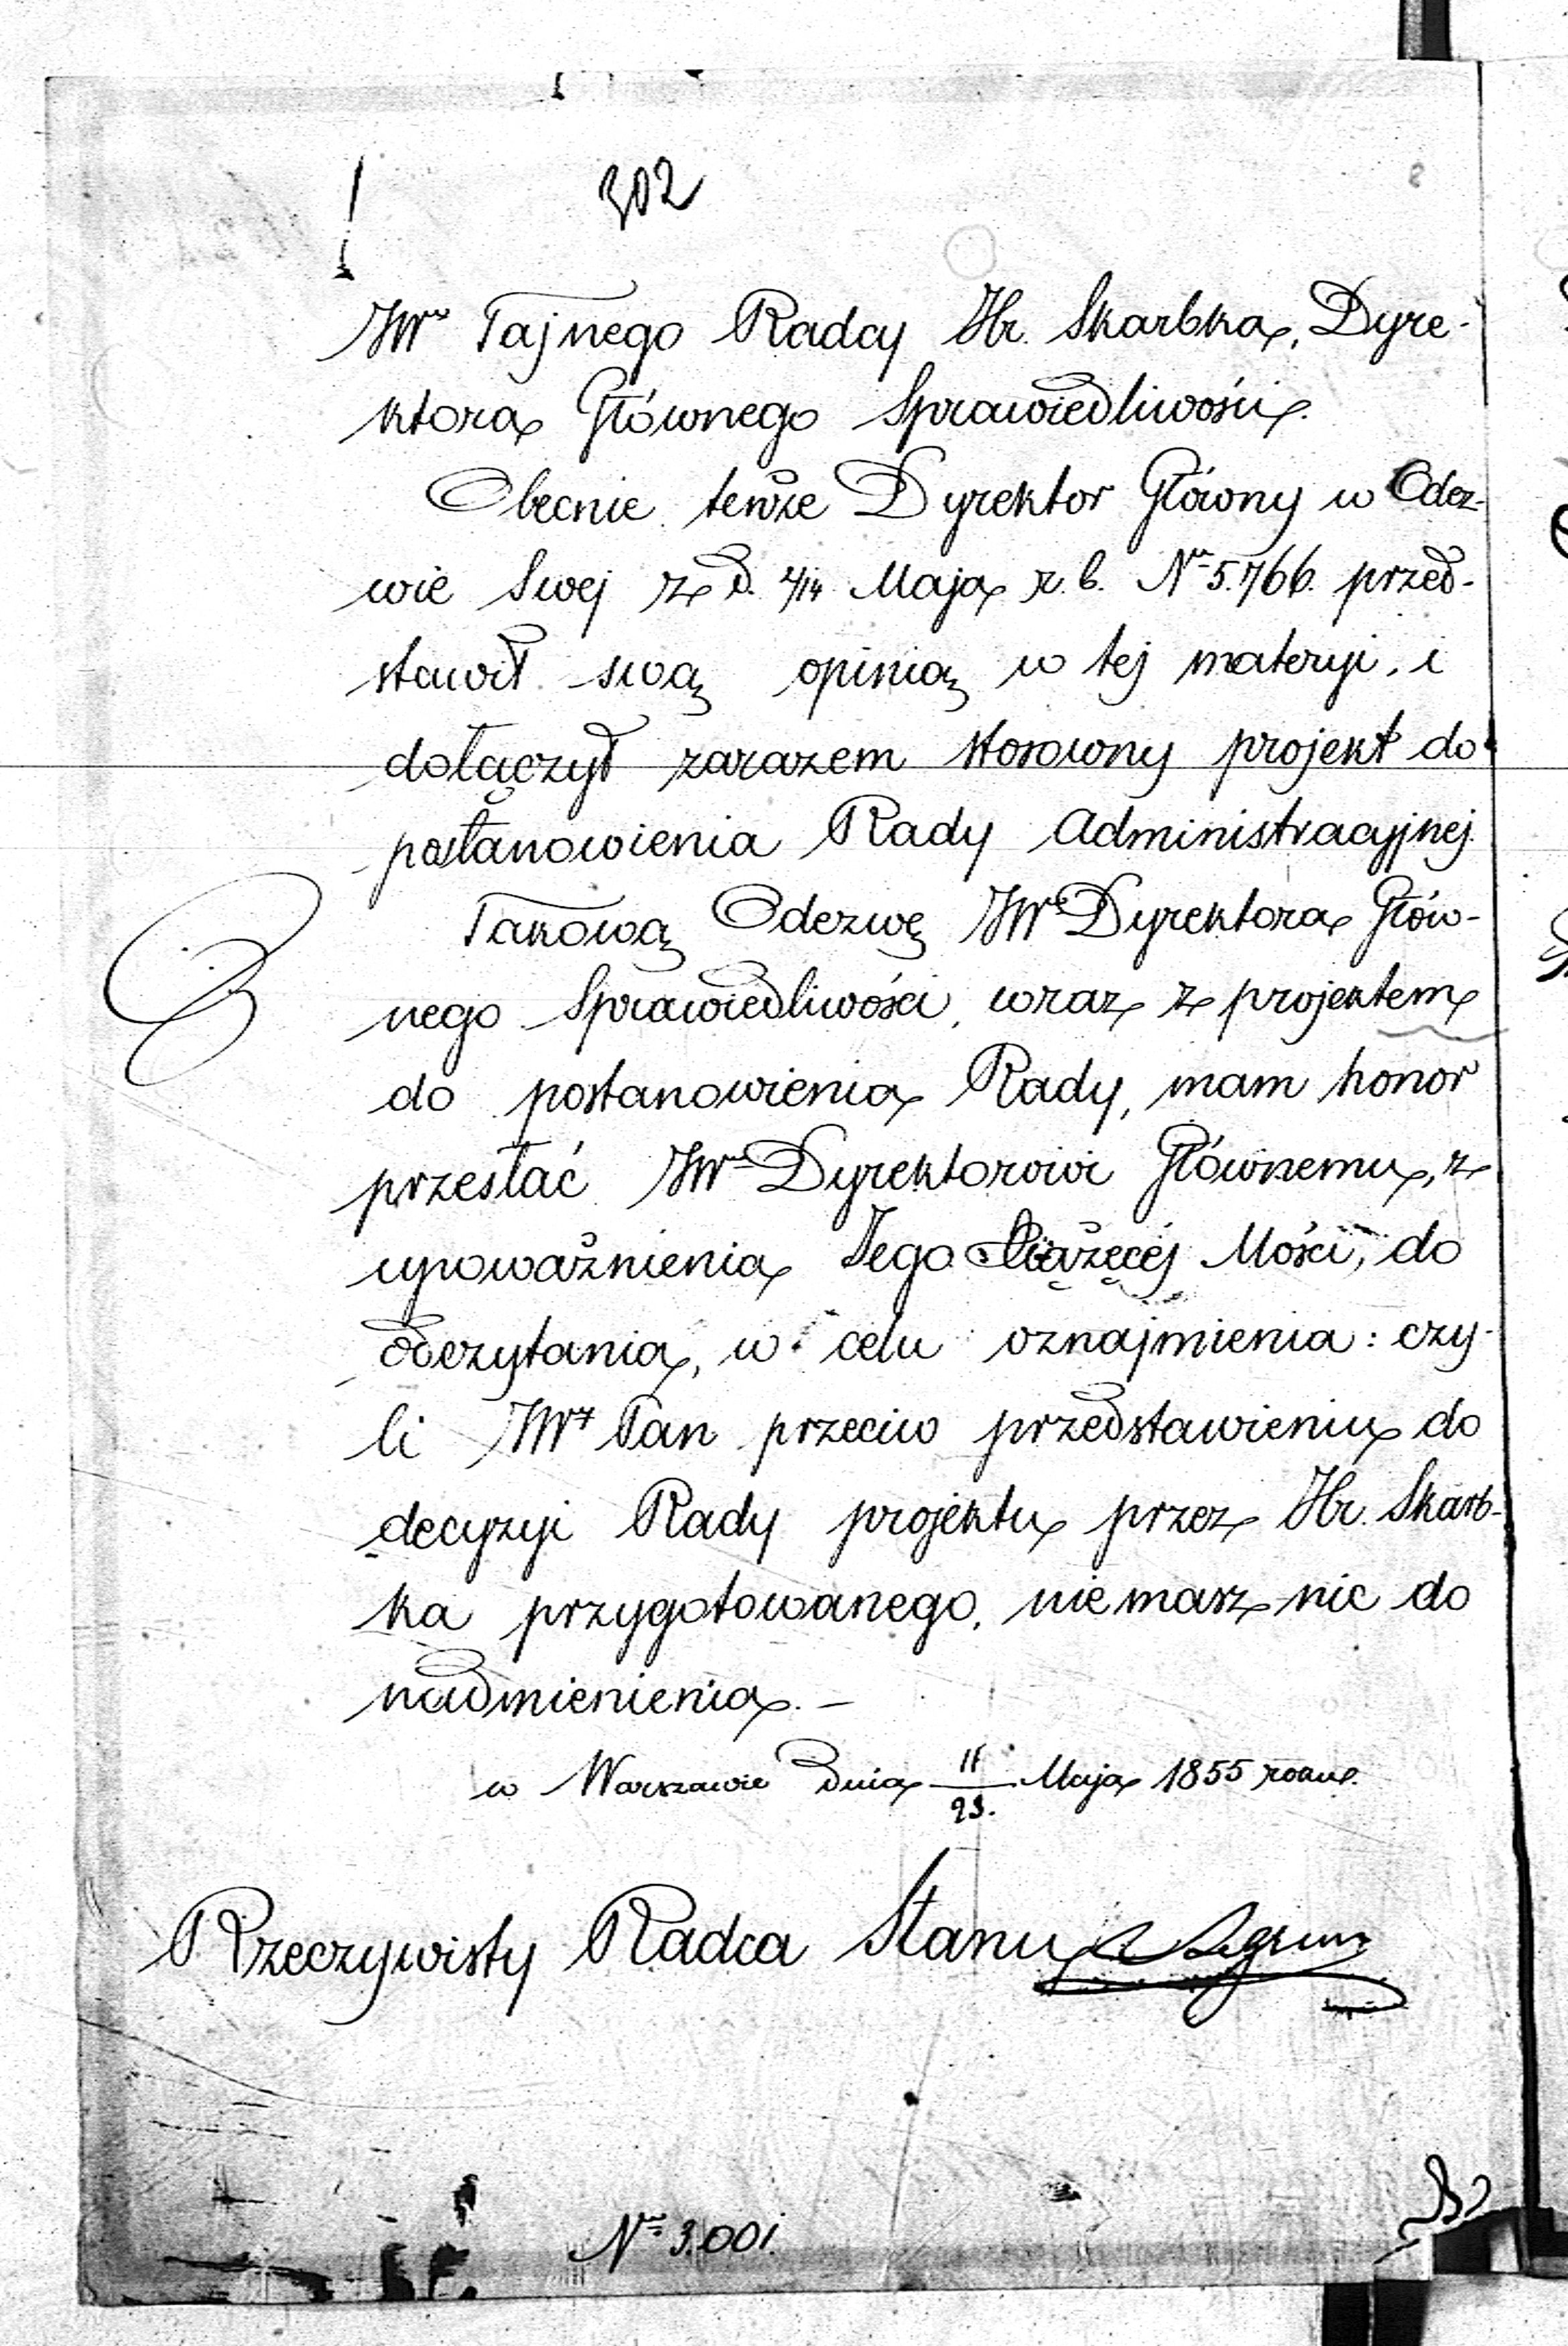 302
JWo Tajnego Radcy Hr. Skarbka, Dyre-
ktora Głównego Sprawiedliwości.
Obecnie tenże Dyrektor Główny w Odez-
wie Swej z d. 2/14 Maja r. b. No 5.766. przed-
stawił swą opinią w tej materyi, i
dołączył zarazem stosowny projekt do
postanowienia Rady Administracyjnej.
Takową Odezwę JWo Dyrektora Głów-
nego Sprawiedliwości, wraz z projektem
do postanowienia Rady, mam honor
przesłać JWu Dyrektorowi Głównemu, z
upoważnienia Jego Książęcéj Mości, do
odczytania, w celu oznajmienia: czy-
li JWy Pan przeciw przedstawieniu do
decyzyi Rady projektu przez Hr. Skarb-
ka przygotowanego, nie masz nic do
nadmienienia. —
w Warszawie dnia 11/23. Maja 1855 roku.
Rzeczywisty Radca Stanu
No 3.001.